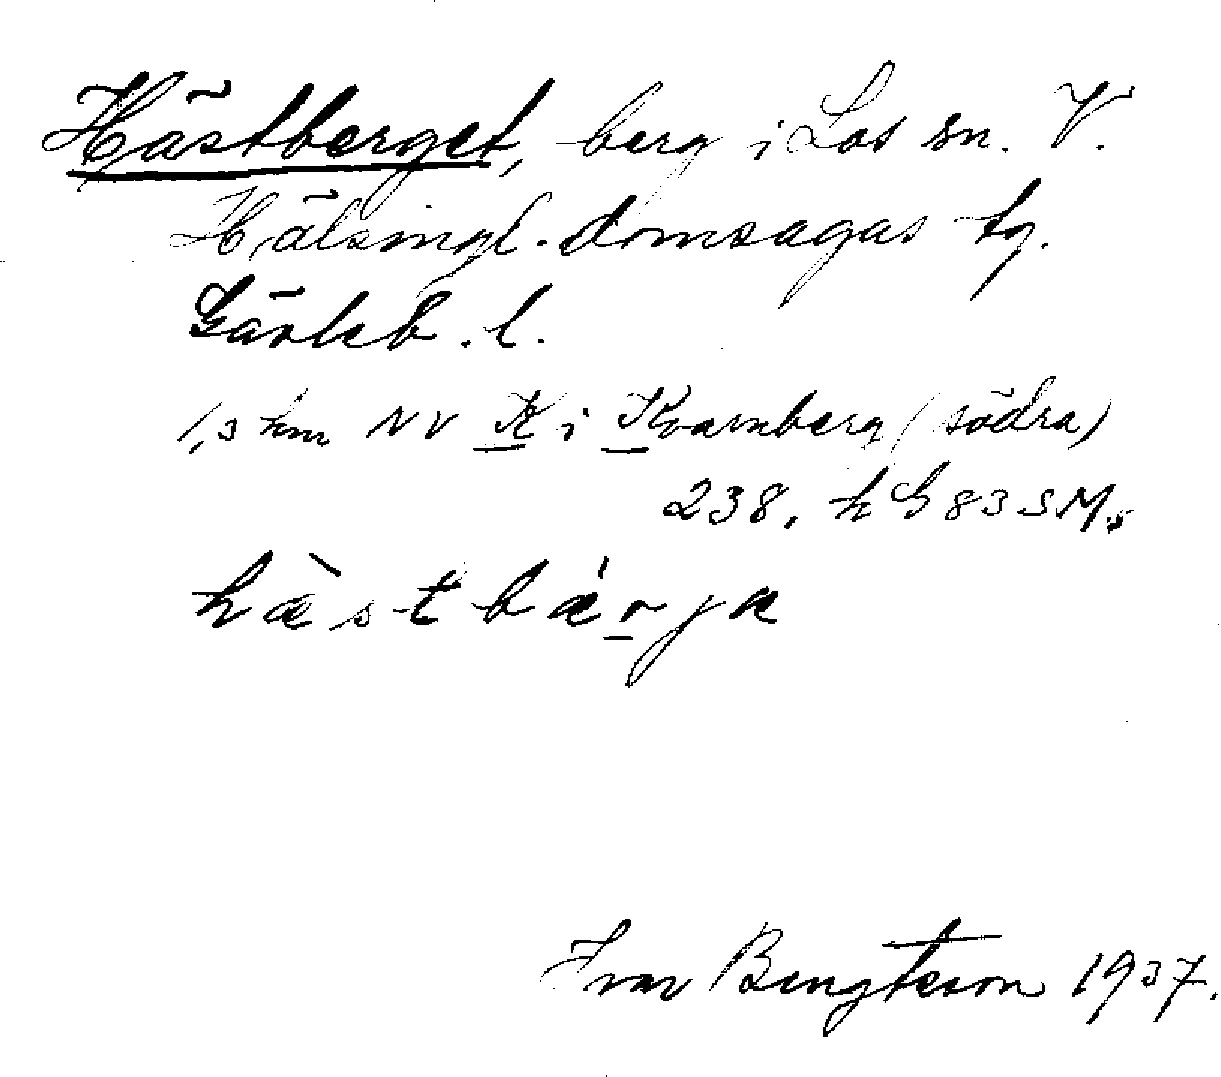 Hästberget, berg i Los sn. V.
Hälsingl. domsagas tg.
Gävleb. l.
1,3 km NV K i Kvarnberg (södra)
238, h G 83 SMs
hæ̀stbǽrja
Ivar Bengtsson 1937.